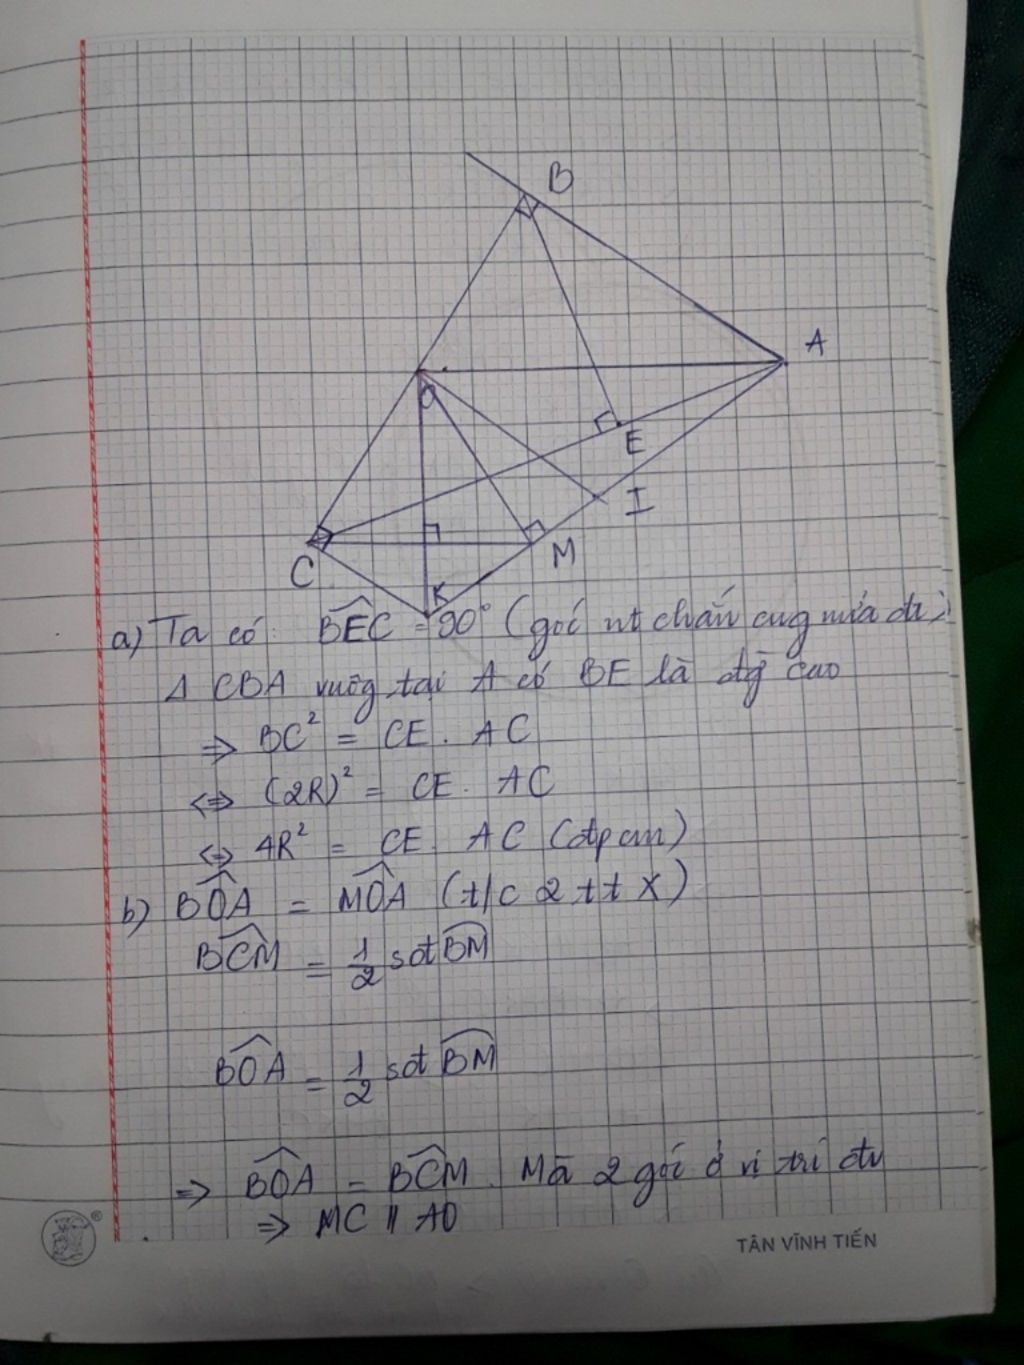 B
A
O
E
I
C
M
K
a) Ta có BEC = 90° (góc nt chắn cug nửa đt)
Δ CBA vuôg tại A có BE là đg cao
=> BC² = CE . AC
<=> (2R)² = CE . AC
<=> 4R² = CE . AC (đpcm)
b) BOA = MOA (t/c 2 tt X)
BCM = 1/2 sđ BM
BOA = 1/2 sđ BM
=> BOA = BCM . Mà 2 góc ở vị trí đv
=> MC // AO
®
TÂN VĨNH TIẾN